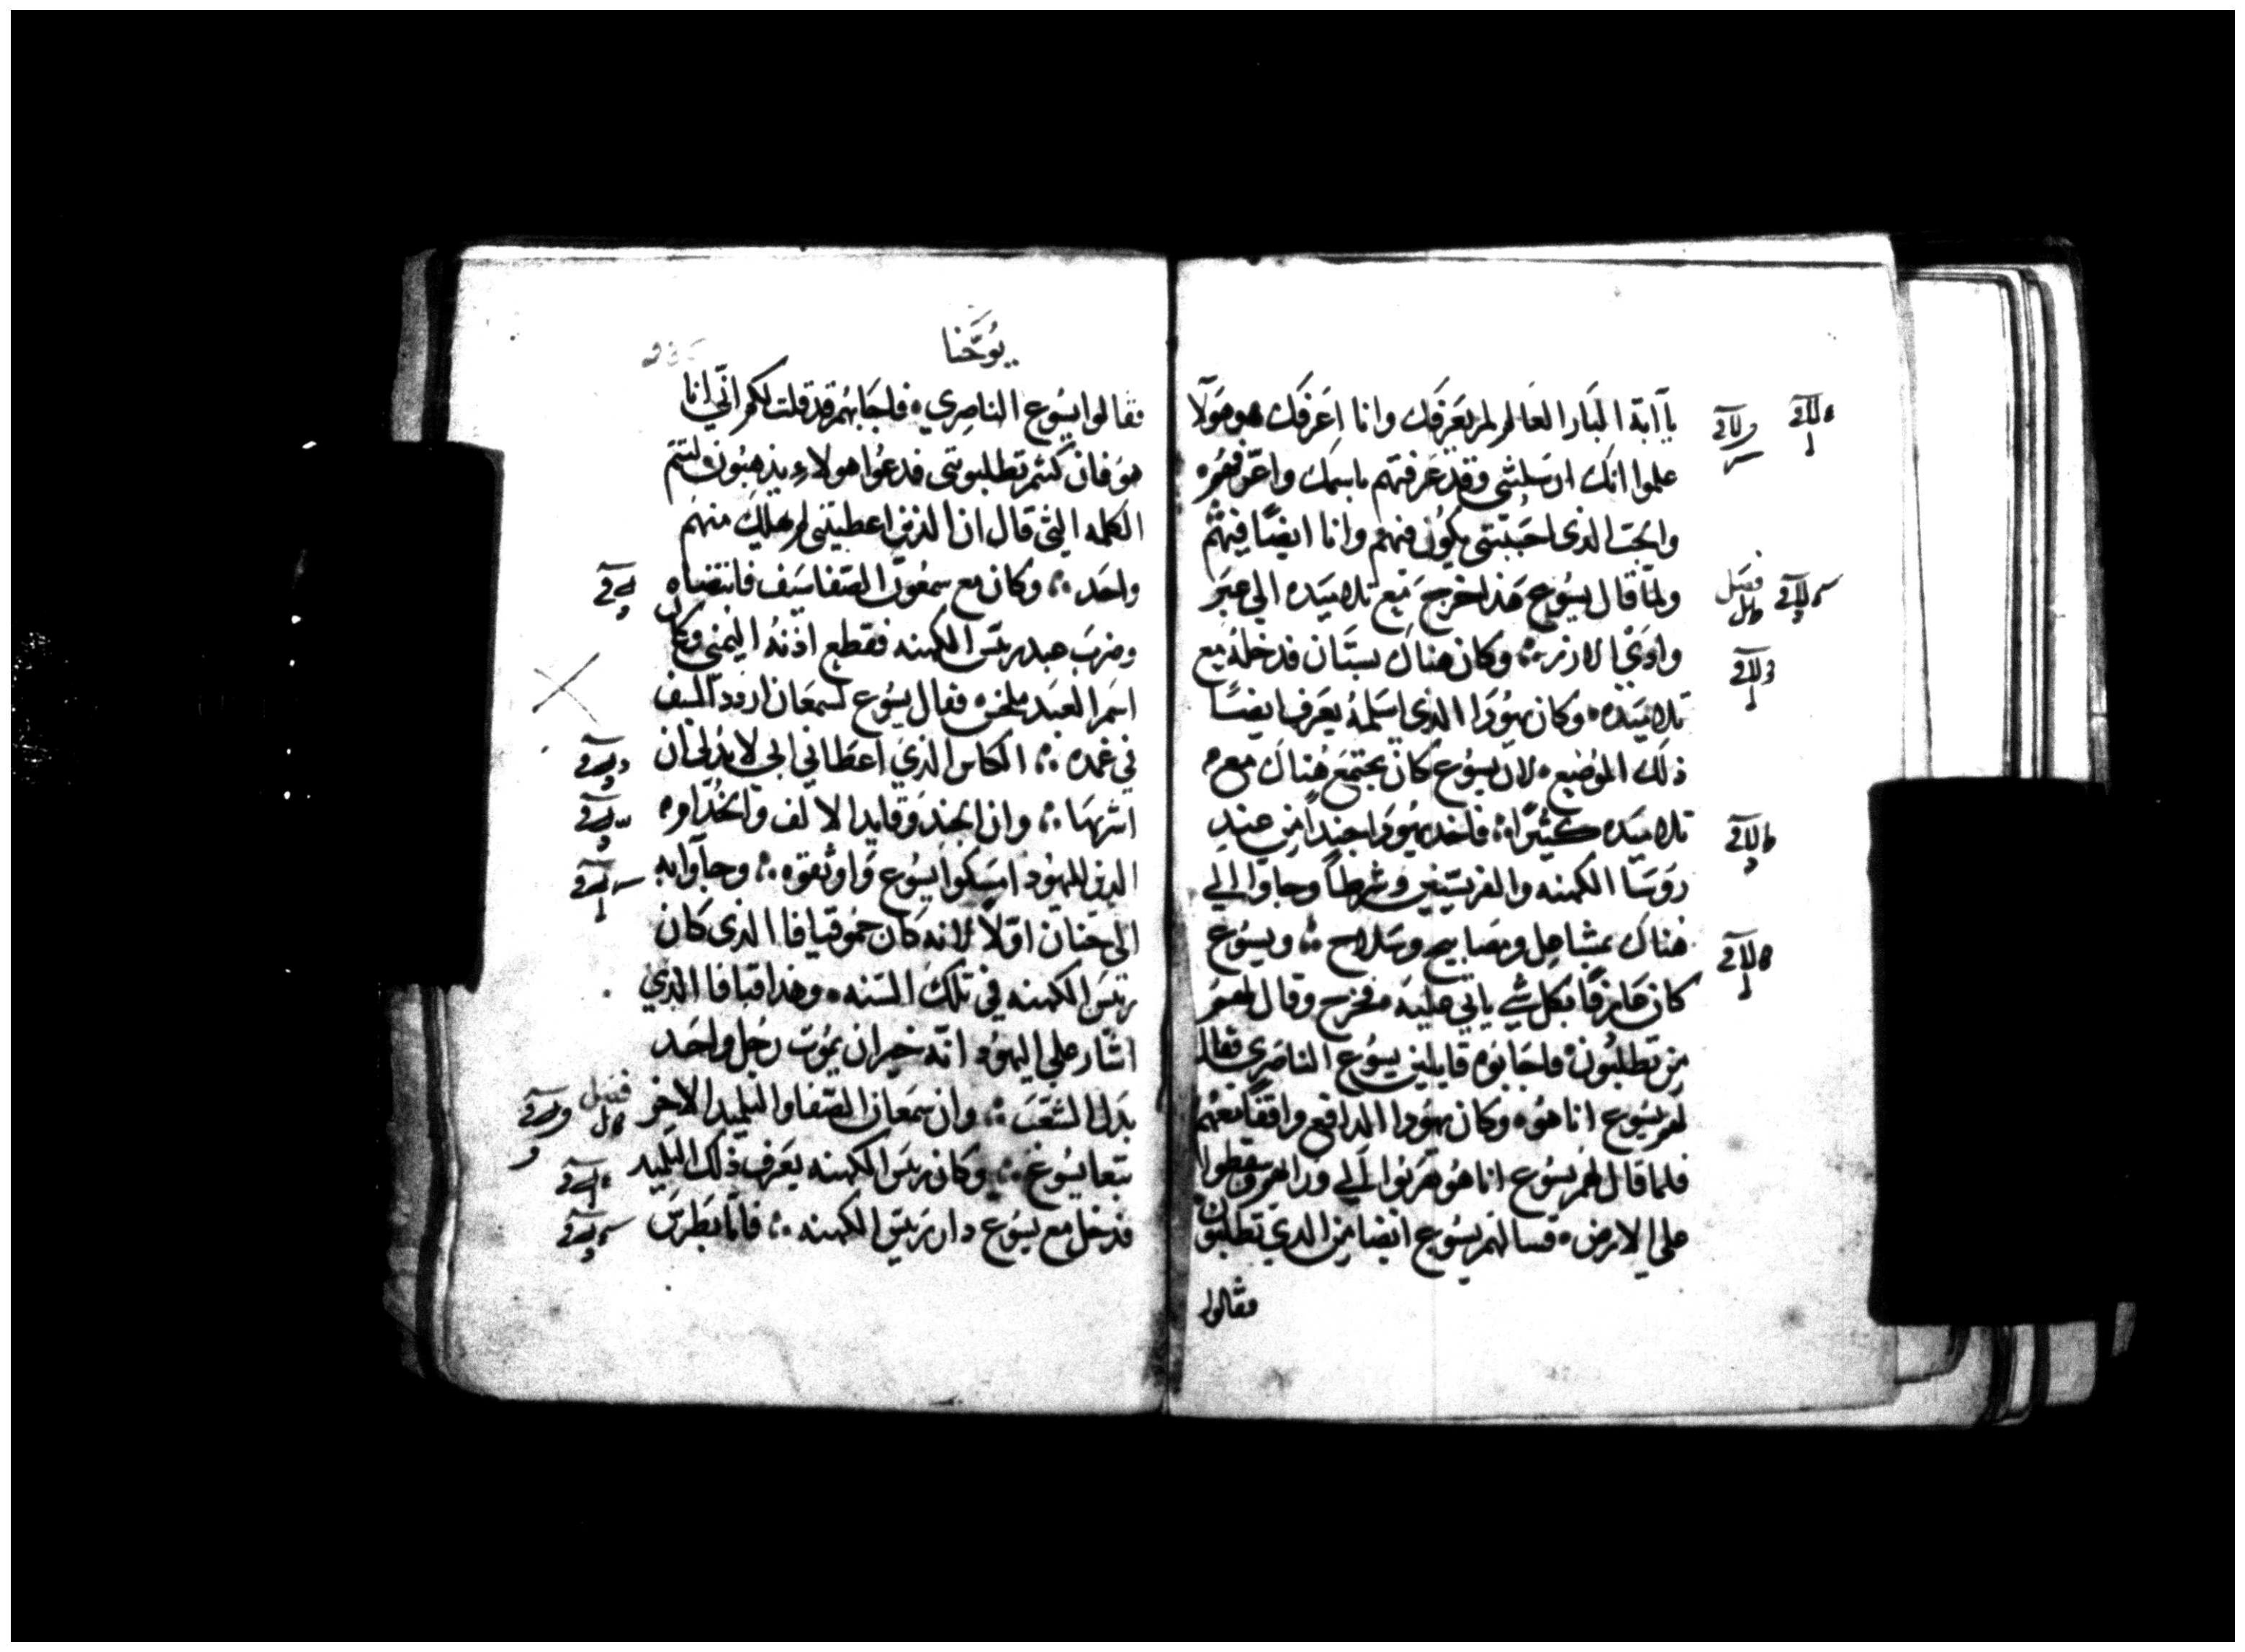 يآ آبة البار العالم لم يعرفك وانا اعرفك هو هولا
علموا انك ارسلتني وقد عرفتهم باسمك واعرفهم
والحب الذي احببتني يكون فيهم وانا ايضًا فيهم
ولما قال يسوع هذا خرج مع تلاميده الي عبر
فصل
وادي الارز وكان هناك بستان فدخله مع
تلاميده وكان يهودا الذي اسلمه يعرف ايضًا
ذلك الموضع لان يسوع كان يجتمع هناك مع
تلاميده كثيرًا فاخد يهودا جندًا من عند
روسا الكهنه والفريسيين وشرطًا وجاوا الي
هناك بمشاعل ومصابيح وسلاح ويسوع
كان عارفًا بكل شي ياتي عليه فخرج وقال لهم
من تطلبون فاجابوه قايلين يسوع الناصري فقال
لهم يسوع انا هو وكان يهودا الدافع واقفًا معهم
فلما قال لهم يسوع انا هو هربوا الي ورا وسقطوا
علي الارض فسالهم يسوع ايضا من الدي تطلبون
فقالوا
يوحنا
فقالوا يسوع الناصري فاجابهم قد قلت لكم انّي انا
هو فان كنتم تطلبوني فدعوا هولاء يذهبون لتتم
الكلمه التي قال ان الذين اعطيتني لم يهلك منهم
واحد وكان مع سمعون الصفا سيف فانتضاه
وضرب عبد ريس الكهنه فقطع اذنه اليمني وكان
اسم العبد ملخس فقال يسوع لسمعان اردد السيف
في غمده الكاس الذي اعطاني ابي لا بد لي ان
اشربها وان الجند وقايد الالف والخدام
الذين لليهود امسكوا يسوع واوثقوه وجآوا به
الي حنان اولًا لانه كان حمو قيافا الذي كان
ريس الكهنه في تلك السنه وهذا قيافا الذي
اشار علي اليهود انه خير ان يموت رجل واحد
بدل الشعب وان سمعان الصفا والتلميد الاخر
فصل
تبعا يسوع وكان ريس الكهنه يعرف ذلك التلميد
فدخل مع يسوع دار ريس الكهنه فاما بطرس